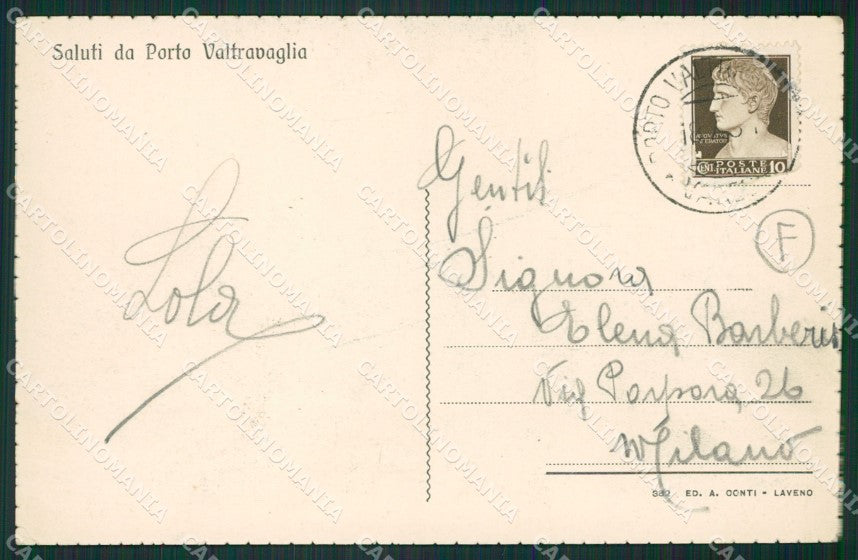 Saluti da Porto Valtravaglia
PORTO VAL
CENT. POSTE ITALIANE 10
F
Lola
Gentil
Signora
Elena Barberis
Via Porpora, 26
Milano
ED. A. CONTI - LAVENO
CARTOLINOMANIA